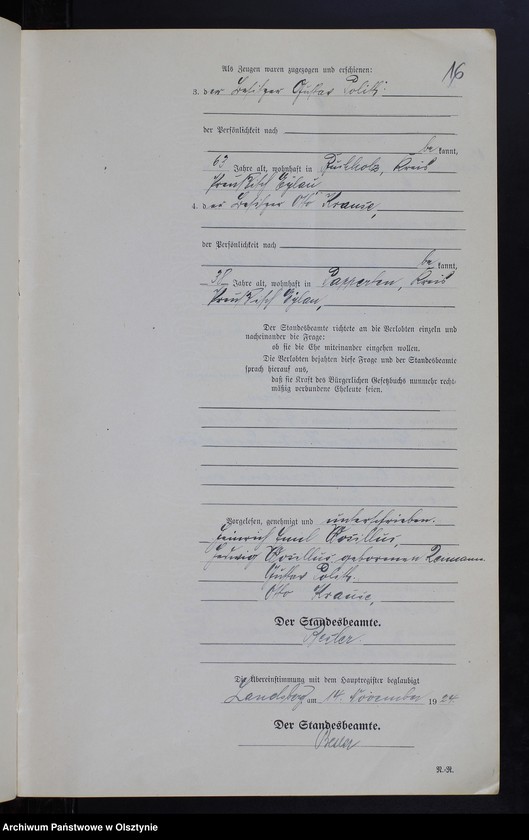 16
Als Zeugen waren zugezogen und erschienen:
3. der Besitzer Gustav Polith
der Persönlichkeit nach
be kannt,
63 Jahre alt, wohnhaft in Buchholz, Kreis
Preußisch Eylau
4. der Besitzer Otto Krause,
der Persönlichkeit nach
be kannt,
38 Jahre alt, wohnhaft in Papperten, Kreis
Preußisch Eylau,
Der Standesbeamte richtete an die Verlobten einzeln und
nacheinander die Frage:
ob sie die Ehe miteinander eingehen wollen.
Die Verlobten bejahten diese Frage und der Standesbeamte
sprach hierauf aus,
daß sie kraft des Bürgerlichen Gesetzbuchs nunmehr recht-
mäßig verbundene Eheleute seien.
Vorgelesen, genehmigt und unterschrieben.
Heinrich Emil
Hedwig geborene
Gustav Polith.
Otto Krause,
Der Standesbeamte.
Die Übereinstimmung mit dem Hauptregister beglaubigt
Landsberg am 14. November 1924
Der Standesbeamte.
N.-R.
Archiwum Państwowe w Olsztynie